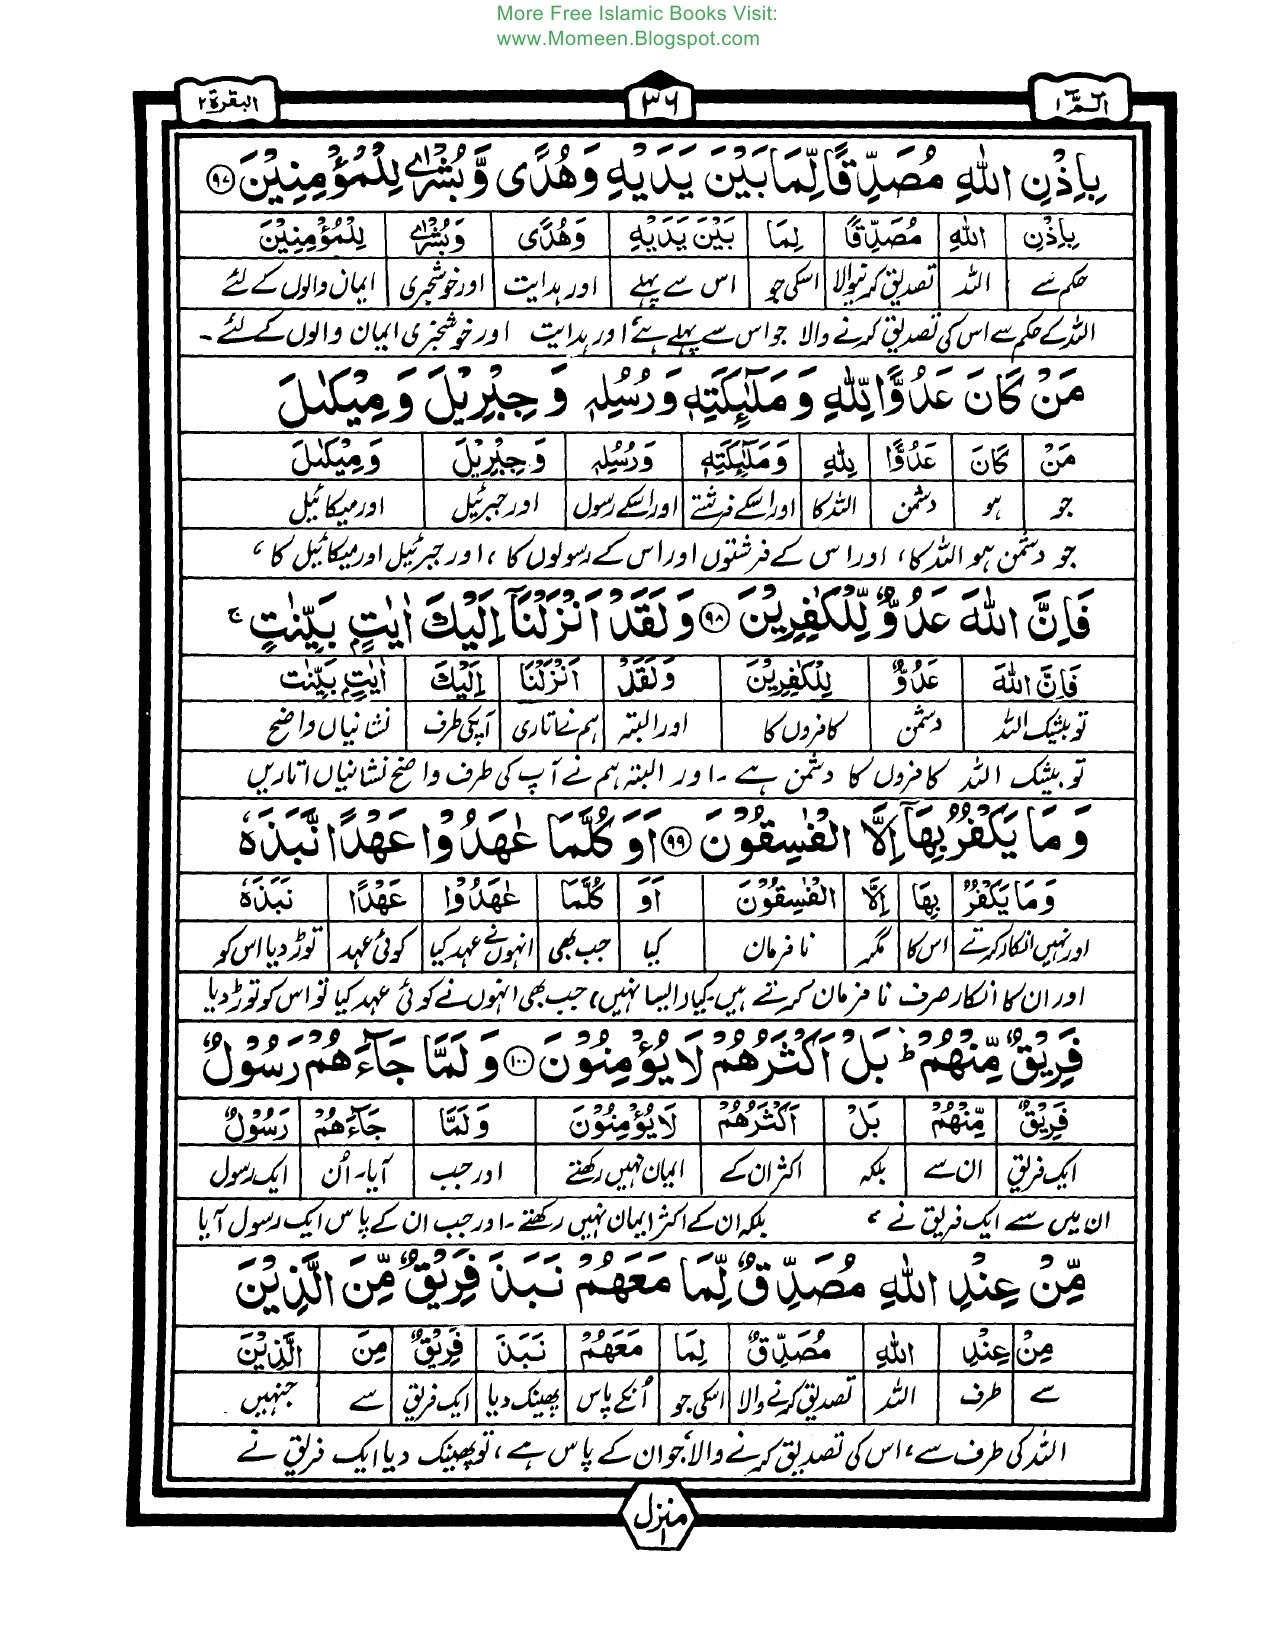 More Free Islamic Books Visit:
www.Momeen.Blogspot.com
الٓمّٓ ۱ ۳۶ البقرة ۲
بِاِذْنِ اللّٰهِ مُصَدِّقًا لِّمَا بَيْنَ يَدَيْهِ وَهُدًى وَّبُشْرٰى لِلْمُؤْمِنِيْنَ ۹۷
بِاِذْنِ اللّٰهِ مُصَدِّقًا لِمَا بَيْنَ يَدَيْهِ وَهُدًى وَبُشْرٰى لِلْمُؤْمِنِيْنَ
حکم سے اللہ تصدیق کرنیوالا اسکی جو اس سے پہلے اور ہدایت اور خوشخبری ایمان والوں کے لئے
اللہ کے حکم سے اس کی تصدیق کرنے والا جو اس سے پہلے ہے، اور ہدایت اور خوشخبری ایمان والوں کے لئے۔
مَنْ كَانَ عَدُوًّا لِّلّٰهِ وَمَلٰٓئِكَتِهٖ وَرُسُلِهٖ وَجِبْرِيْلَ وَمِيْكٰىلَ
مَنْ كَانَ عَدُوًّا لِلّٰهِ وَمَلٰٓئِكَتِهٖ وَرُسُلِهٖ وَجِبْرِيْلَ وَمِيْكٰىلَ
جو ہو دشمن اللہ کا اور اسکے فرشتے اور اسکے رسول اور جبرئیل اور میکائیل
جو دشمن ہو اللہ کا، اور اس کے فرشتوں اور اس کے رسولوں کا، اور جبرئیل اور میکائیل کا،
فَاِنَّ اللّٰهَ عَدُوٌّ لِّلْكٰفِرِيْنَ ۹۸ وَلَقَدْ اَنْزَلْنَآ اِلَيْكَ اٰيٰتٍۭ بَيِّنٰتٍ ۚ
فَاِنَّ اللّٰهَ عَدُوٌّ لِلْكٰفِرِيْنَ وَلَقَدْ اَنْزَلْنَا اِلَيْكَ اٰيٰتٍۭ بَيِّنٰت
تو بیشک اللہ دشمن کافروں کا اور البتہ ہم نے اتاری آپکی طرف نشانیاں واضح
تو بیشک اللہ کافروں کا دشمن ہے۔ اور البتہ ہم نے آپ کی طرف واضح نشانیاں اتاریں
وَمَا يَكْفُرُ بِهَآ اِلَّا الْفٰسِقُوْنَ ۹۹ اَوَكُلَّمَا عٰهَدُوْا عَهْدًا نَّبَذَهٗ
وَمَا يَكْفُرُ بِهَا اِلَّا الْفٰسِقُوْنَ اَوَ كُلَّمَا عٰهَدُوْا عَهْدًا نَبَذَهٗ
اور نہیں انکار کرتے اس کا مگر نافرمان کیا جب بھی انہوں نے عہد کیا کوئی عہد توڑ دیا اس کو
اور ان کا انکار صرف نافرمان کرتے ہیں۔ کیا (ایسا نہیں) جب بھی انہوں نے کوئی عہد کیا تو اس کو توڑ دیا
فَرِيْقٌ مِّنْهُمْ ؕ بَلْ اَكْثَرُهُمْ لَا يُؤْمِنُوْنَ ۱۰۰ وَلَمَّا جَآءَهُمْ رَسُوْلٌ
فَرِيْقٌ مِّنْهُمْ بَلْ اَكْثَرُهُمْ لَا يُؤْمِنُوْنَ وَلَمَّا جَآءَهُمْ رَسُوْلٌ
ایک فریق ان سے بلکہ اکثر ان کے ایمان نہیں رکھتے اور جب آیا۔ اُن ایک رسول
ان میں سے ایک فریق نے، بلکہ ان کے اکثر ایمان نہیں رکھتے۔ اور جب ان کے پاس ایک رسول آیا
مِّنْ عِنْدِ اللّٰهِ مُصَدِّقٌ لِّمَا مَعَهُمْ نَبَذَ فَرِيْقٌ مِّنَ الَّذِيْنَ
مِنْ عِنْدِ اللّٰهِ مُصَدِّقٌ لِمَا مَعَهُمْ نَبَذَ فَرِيْقٌ مِنَ الَّذِيْنَ
سے طرف اللہ تصدیق کرنے والا اسکی جو اُنکے پاس پھینک دیا ایک فریق سے جنہیں
اللہ کی طرف سے، اس کی تصدیق کرنے والا جو ان کے پاس ہے، تو پھینک دیا ایک فریق نے
منزل ۱